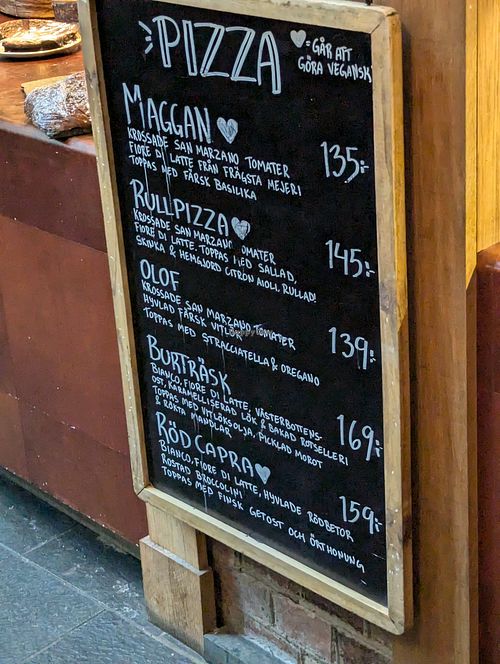 PIZZA
♥ = GÅR ATT
GÖRA VEGANSK
MAGGAN ♥
KROSSADE SAN MARZANO TOMATER
FIORE DI LATTE FRÅN FRÄGSTA MEJERI
TOPPAS MED FÄRSK BASILIKA
135:-
RULLPIZZA ♥
KROSSADE SAN MARZANO TOMATER
FIORE DI LATTE. TOPPAS MED SALLAD,
SKINKA & HEMGJORD CITRON AIOLI. RULLAD!
145:-
OLOF
KROSSADE SAN MARZANO TOMATER
HYVLAD FÄRSK VITLÖK
TOPPAS MED STRACCIATELLA & OREGANO
139:-
BURTRÄSK
BIANCO, FIORE DI LATTE, VÄSTERBOTTENS-
OST, KARAMELLISERAD LÖK & BAKAD ROTSELLERI
TOPPAS MED VITLÖKSOLJA, PICKLAD MOROT
& RÖKTA MANDLAR
169:-
RÖD CAPRA ♥
BIANCO, FIORE DI LATTE, HYVLADE RÖDBETOR
ROSTAD BROCCOLINI
TOPPAS MED FINSK GETOST OCH ÖRTHONUNG
159:-